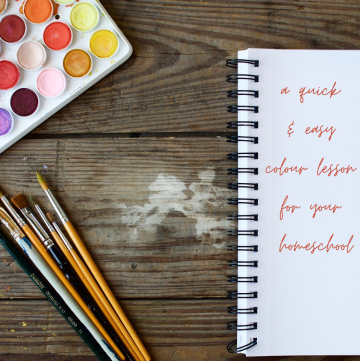 a quick
& easy
colour lesson
for your
homeschool